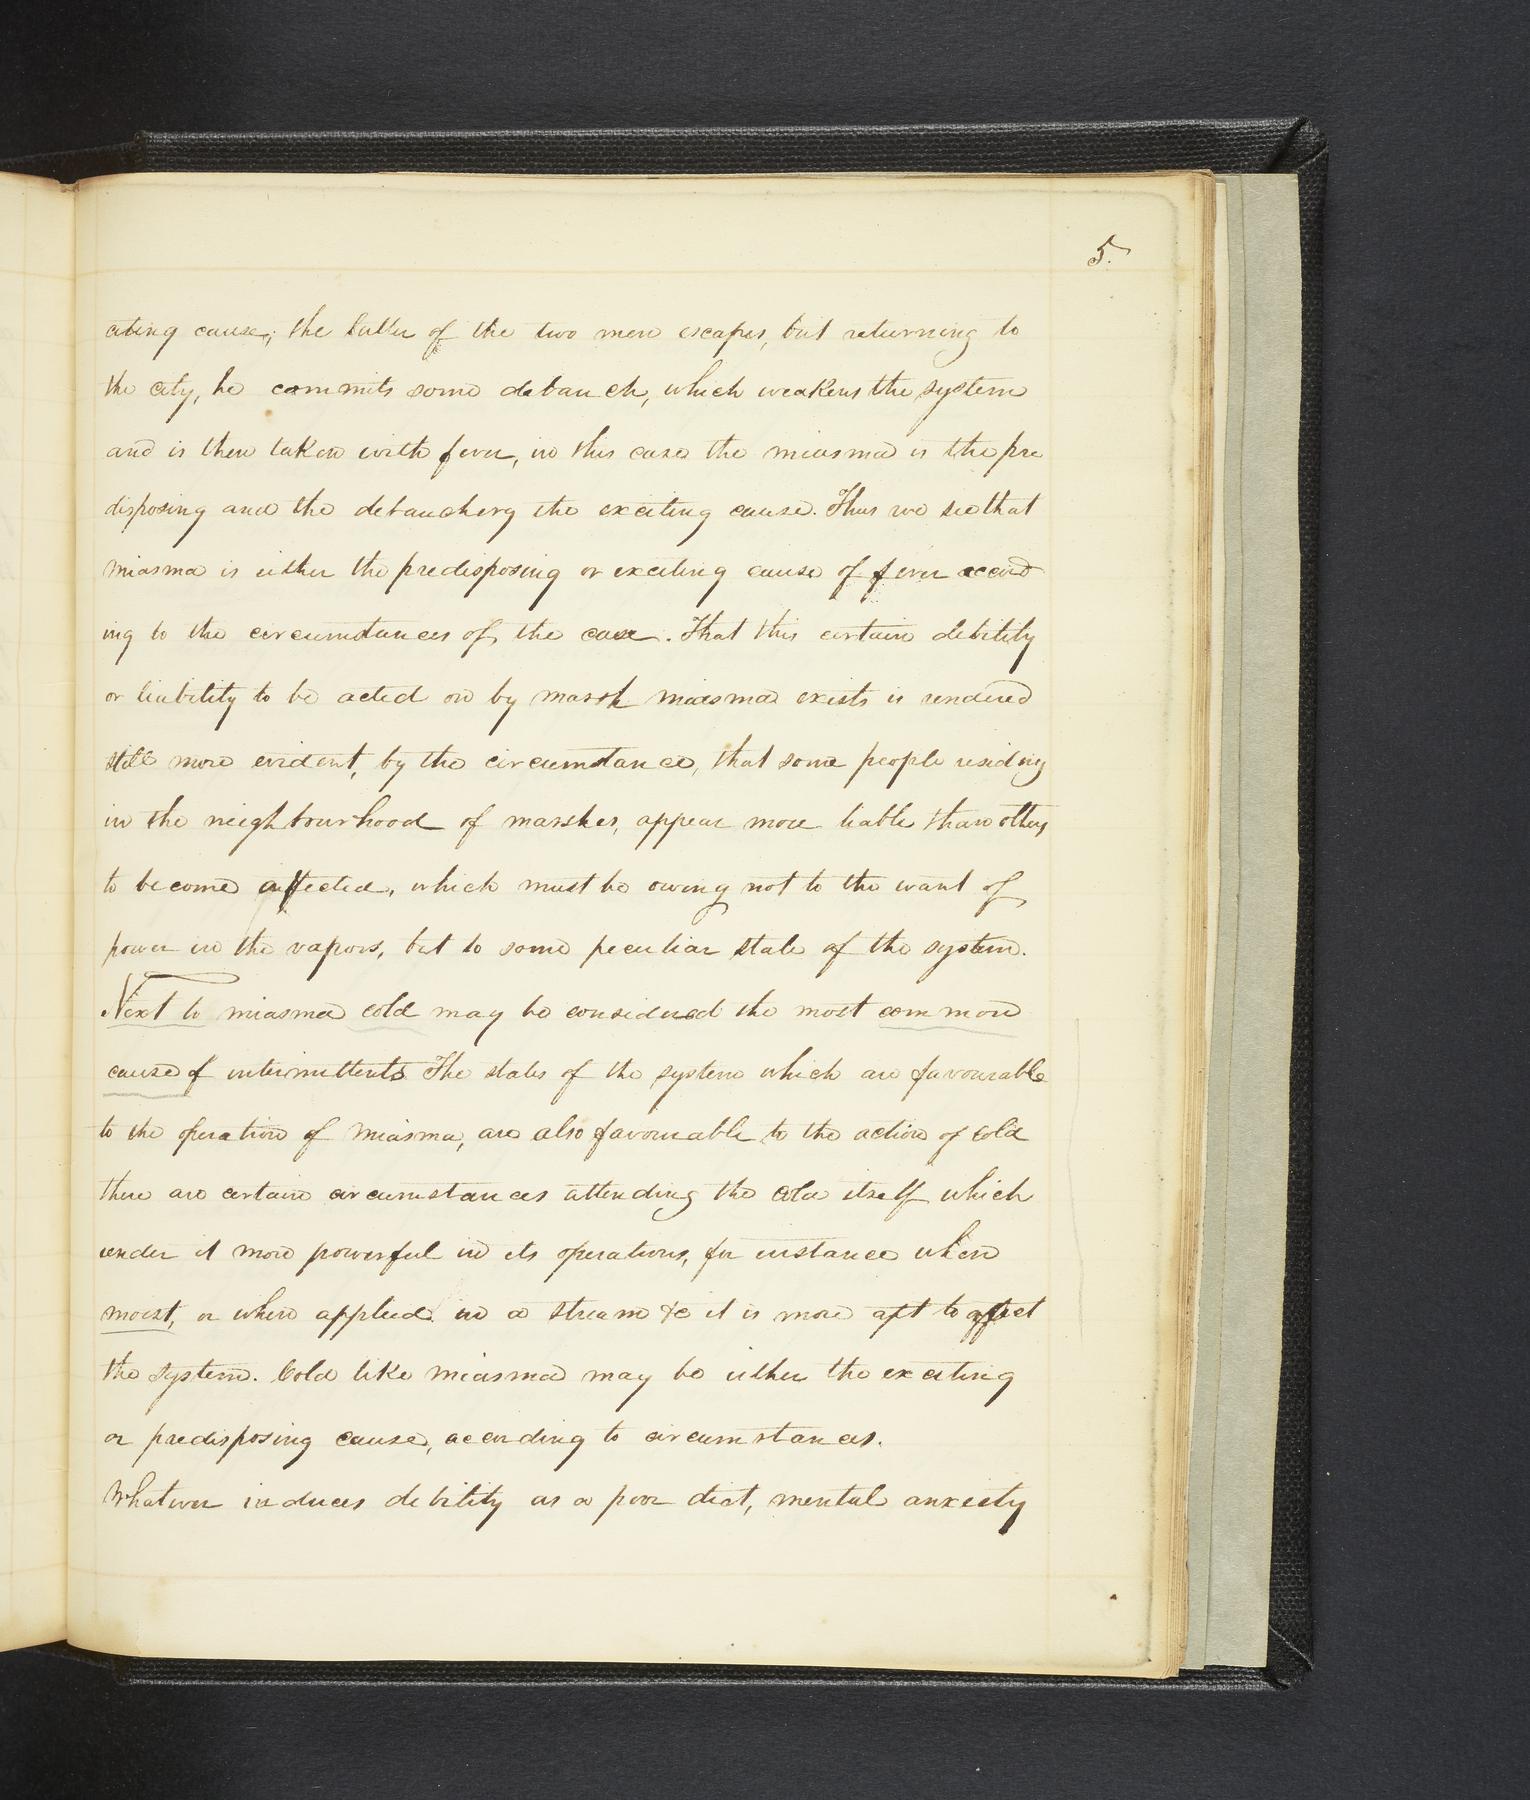 5.
citing cause; the latter of the two men escapes, but returning to
the city, he commits some debauch, which weakens the system
and is then taken with fever, in this case the miasma is the pre
disposing and the debauchery the exciting cause. Thus we see that
miasma is either the predisposing or exciting cause of fever accord
ing to the circumstances of the case. That this certain debility
or liability to be acted on by marsh miasma exists is rendered
still more evident, by the circumstance, that some people residing
in the neighbourhood of marshes, appear more liable than others
to become affected, which must be owing not to the want of
power in the vapors, but to some peculiar state of the system.
Next to miasma cold may be considered the most common
cause of intermittents The states of the system which are favourable
to the operation of miasma, are also favourable to the action of cold
there are certain circumstances attending the cold itself which
render it more powerful in its operations, for instance when
moist, or when applied in a stream &c it is more apt to affect
the system. Cold like miasma may be either the exciting
or predisposing cause, according to circumstances.
Whatever induces debility as a poor diet, mental anxiety